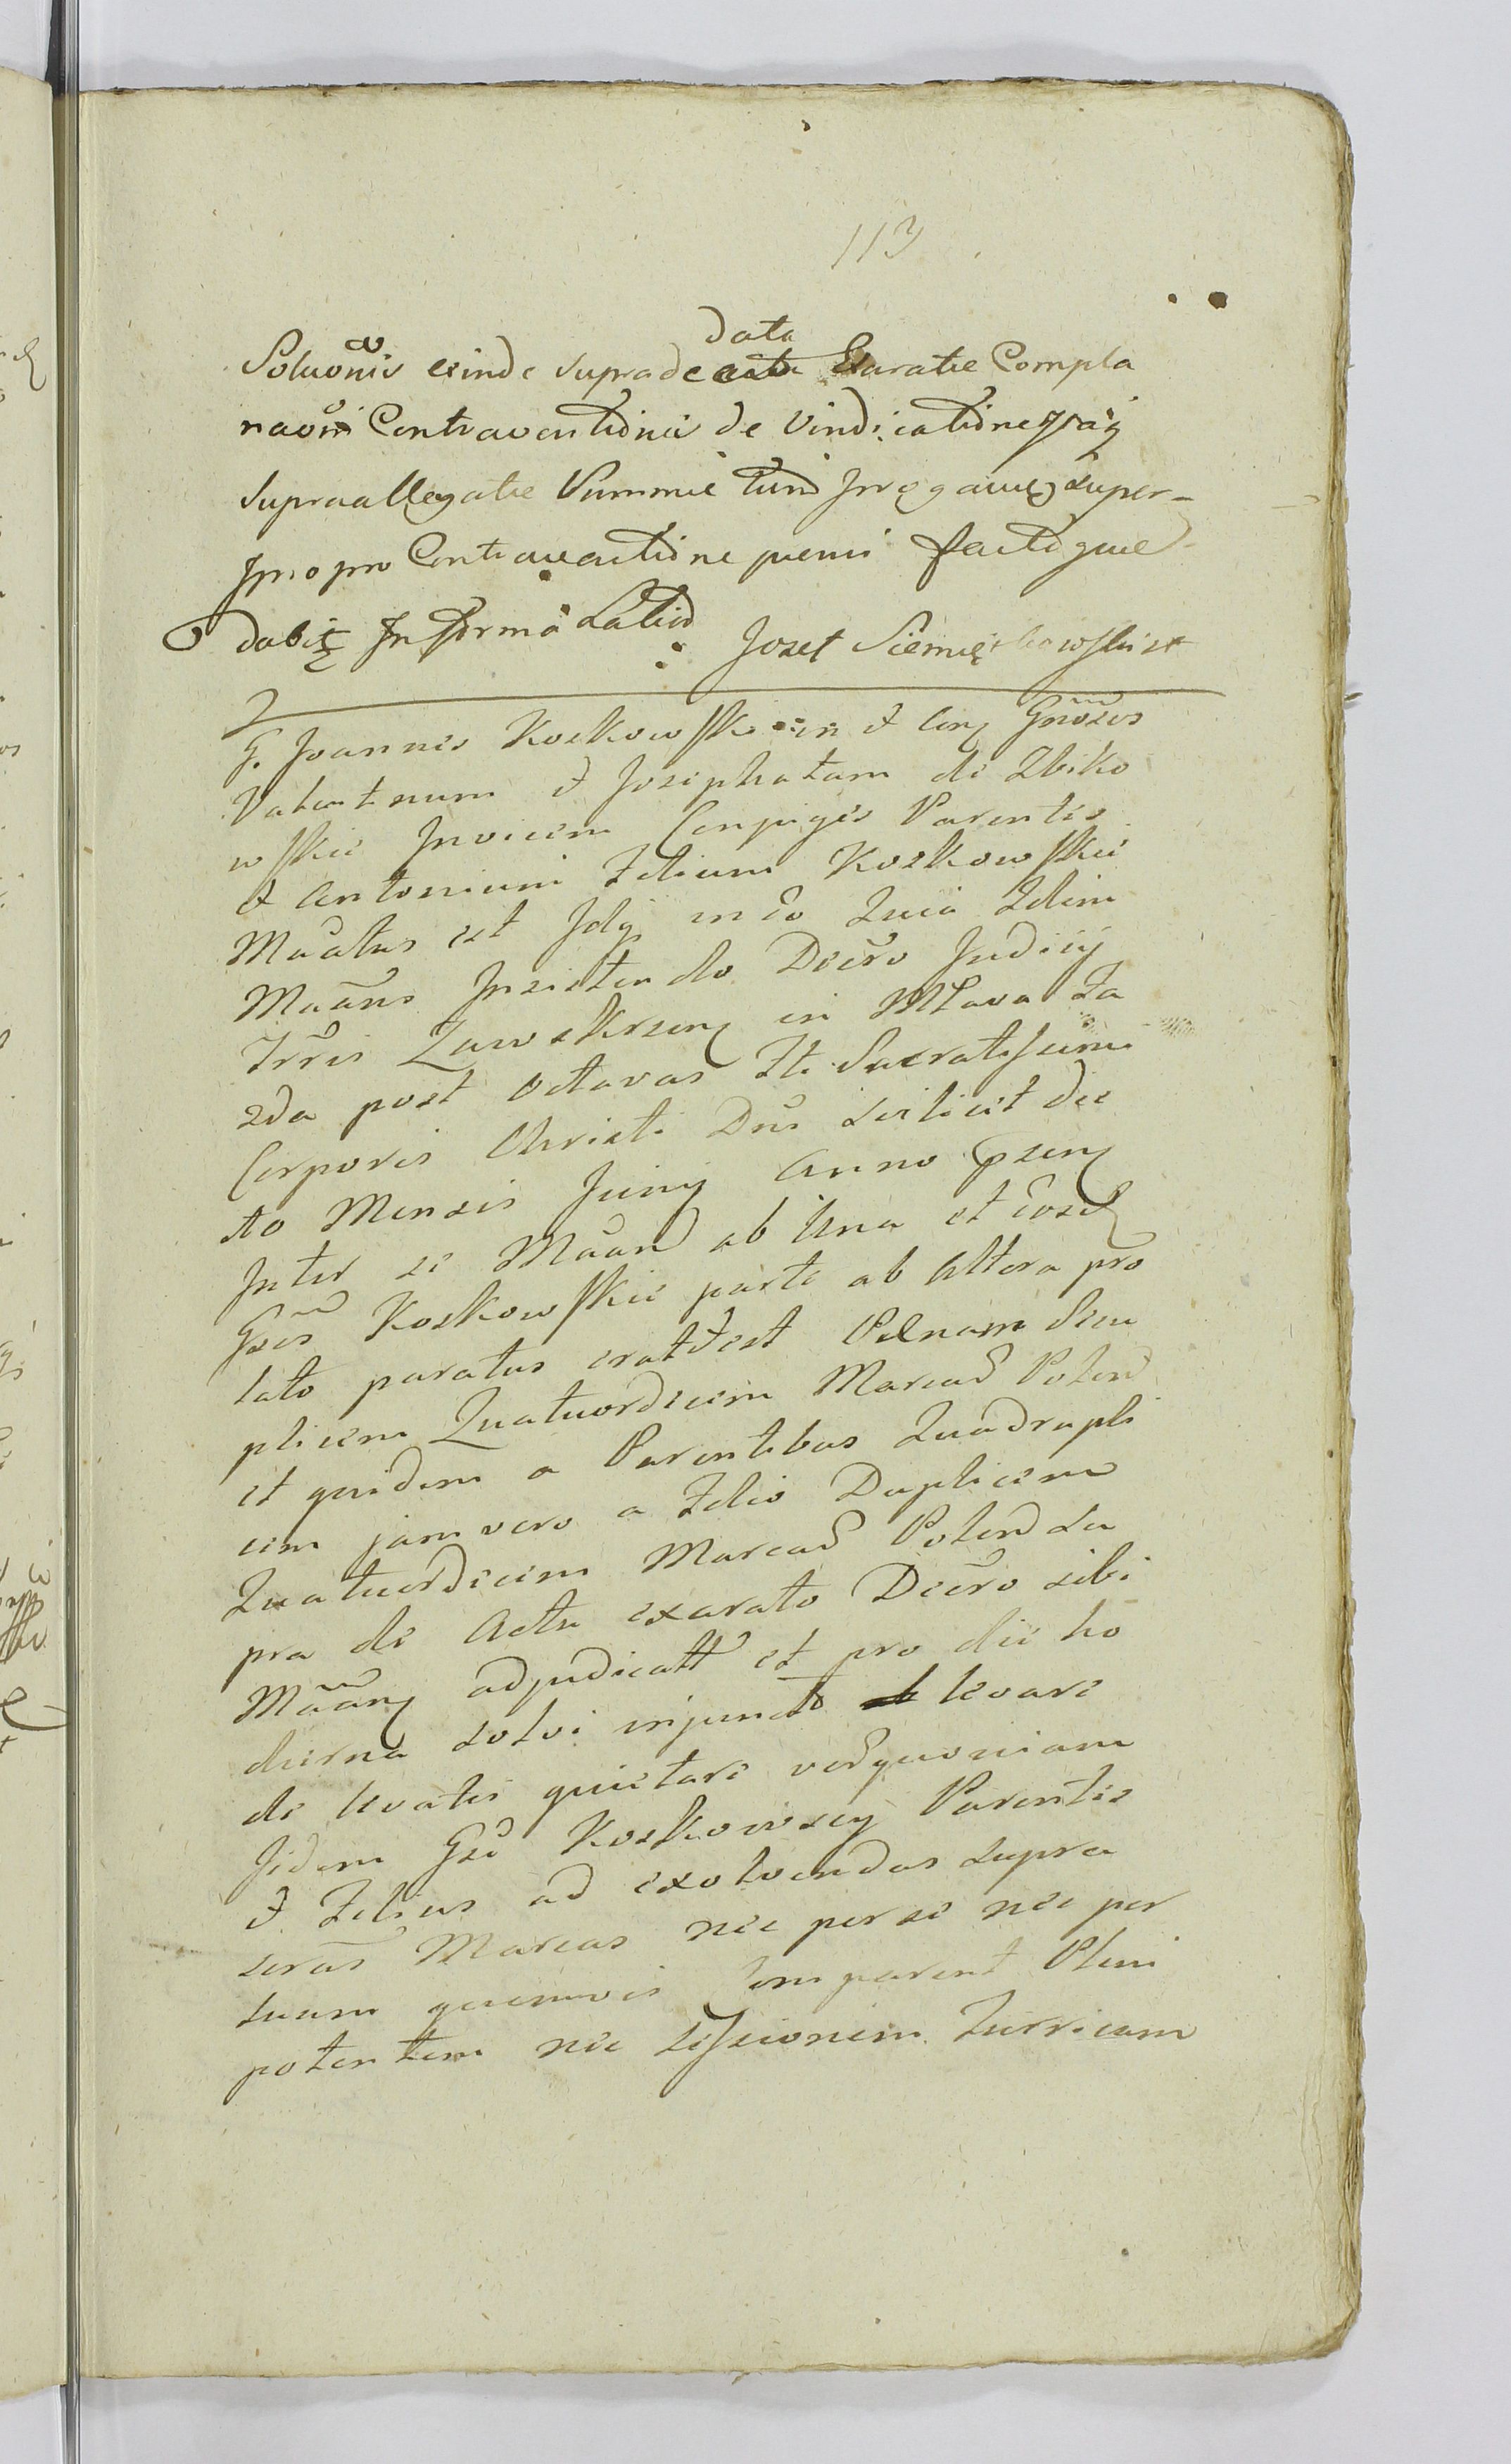 113
data
Soluõnis exinde supra de acta Exaratæ Compla
naõni Contraventionis de Vindicatione
Supraallegatæ Summæ tum super-
pro Contraventione præmi factoque
dabit In forma Latiori Jozef
G. Joannes Koskowski in et Con Gnosos
Valentinum et Josephatam de Zbiko
wskie Invicem Conjuges Parentes
et Antonium Filium Koskowskie
Maãtus est Idq in eo Quia Idem
Maãns Insistendo Decro Judicij
Trris Zawskrzen in Mława Fa
2da post Octavas Fti Sacratissimi
Corporis Christi Dni scilicet die
Mensis Junij Anno prsen
Inter se Maãn ab Una et eosd
Gsos Koskowskie parte ab Altera pro
lato paratus erat et est Pœnam Sexu
plicem Quatuordecim Marcar Polon
et quidem a Parentibus Quadrupli
cem jam vero a Filio Duplicem
Quatuordecim Marcar Polon Su
pra de Actu exarato Decro sibi
Maãn adjudicatt et pro die ho
dierna solvi injunct levare
de levatis quietare verquoniam
Iidem Gsi Koskowscy Parentes
et Filius ad exolvendas supra
scras Marcas nec per se nec per
suum quemvis Comparent Pleni
potentem nec sessionem Turricam